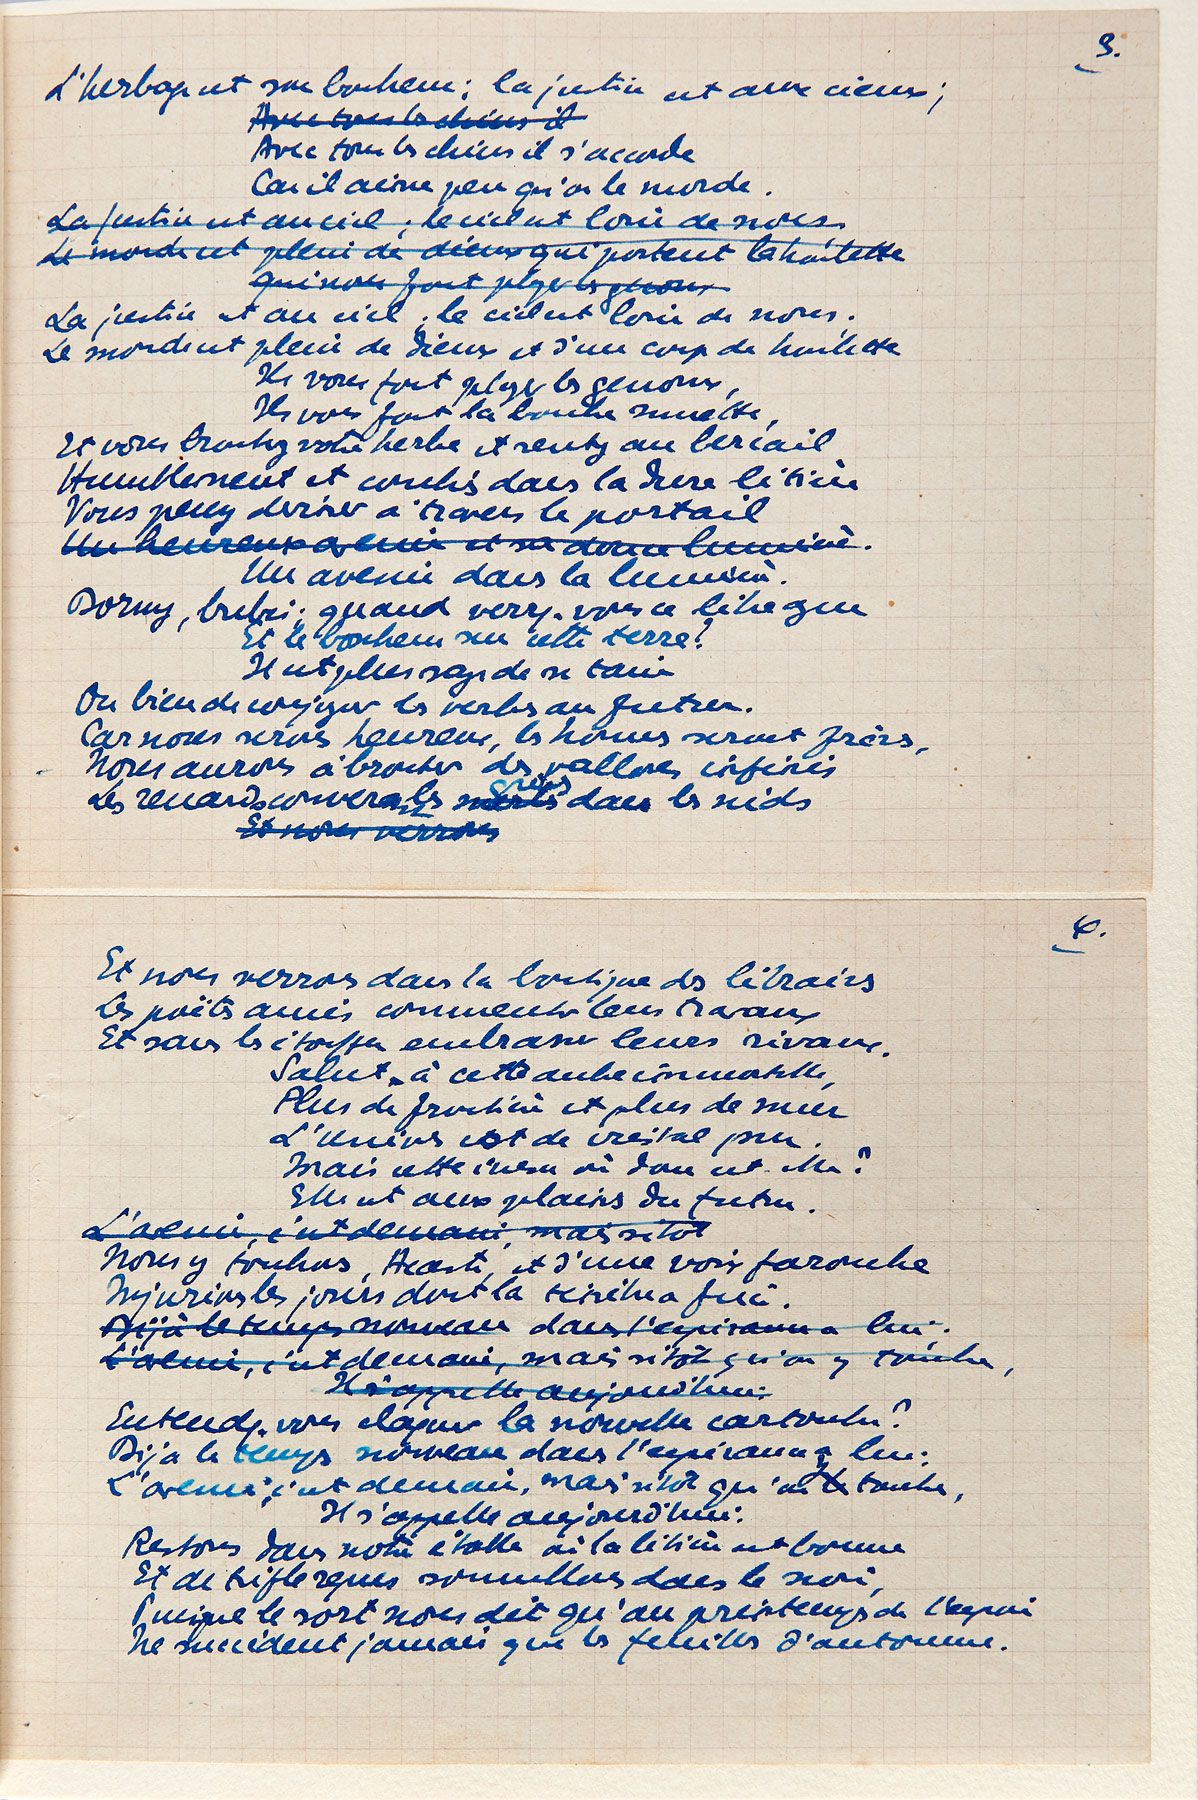 3.
L'herbage est son bonheur ; la justice est aux cieux ;
Avec tous les chiens il
Avec tous les chiens il s'accorde
Car il aime peu qu'on le morde.
La justice est au ciel ; le ciel est loin de nous.
Le monde est plein de dieux qui portent la houlette
Qui nous font ployer les genoux
La justice est au ciel ; le ciel est loin de nous.
Le monde est plein de dieux et d'un coup de houlette
Ils vous font ployer les genoux,
Ils vous font la bouche muette,
Et vous broutez votre herbe et rentrez au bercail
Humblement et couchés dans la dure litière
Vous pouvez deviner à travers le portail
Un heureux avenir et sa douce lumière.
Un avenir dans la lumière.
Dormez, brebis ; quand verrez-vous ce
Et le bonheur sur cette terre ?
Il est plus sage de se taire
Ou bien de conjuguer les verbes au futur.
Car nous serons heureux, les hommes seront frères,
Nous aurons à brouter des vallons infinis
Les renards couveront les dans les nids
Et nous verrons
4.
Et nous verrons dans la boutique des libraires
Les poètes amis commenter leurs travaux
Et sans les étouffer embrasser leurs rivaux.
Salut à cette aube immortelle,
Plus de frontière et plus de mur
L'Univers est de cristal pur.
Mais cette où donc est-elle ?
Elle est aux plaines du futur.
L'avenir, c'est demain, mais sitôt
Nous y touchons, Acaste, et d'une voix farouche
Injurions les jours dont la ténèbre a fui.
Déjà le temps nouveau dans l'espérance a lui ;
L'avenir, c'est demain, mais sitôt qu'on y touche,
Il s'appelle aujourd'hui.
Entendez-vous claquer la nouvelle cartouche ?
Déjà le temps nouveau dans l'espérance a lui ;
L'avenir, c'est demain, mais sitôt qu'on y touche,
Il s'appelle aujourd'hui.
Restons dans notre étable où la litière est bonne
Et de trèfle repus sommeillons dans le noir,
Puisque le sort nous dit qu'au printemps de l'espoir
Ne succèdent jamais que les feuilles d'automne.